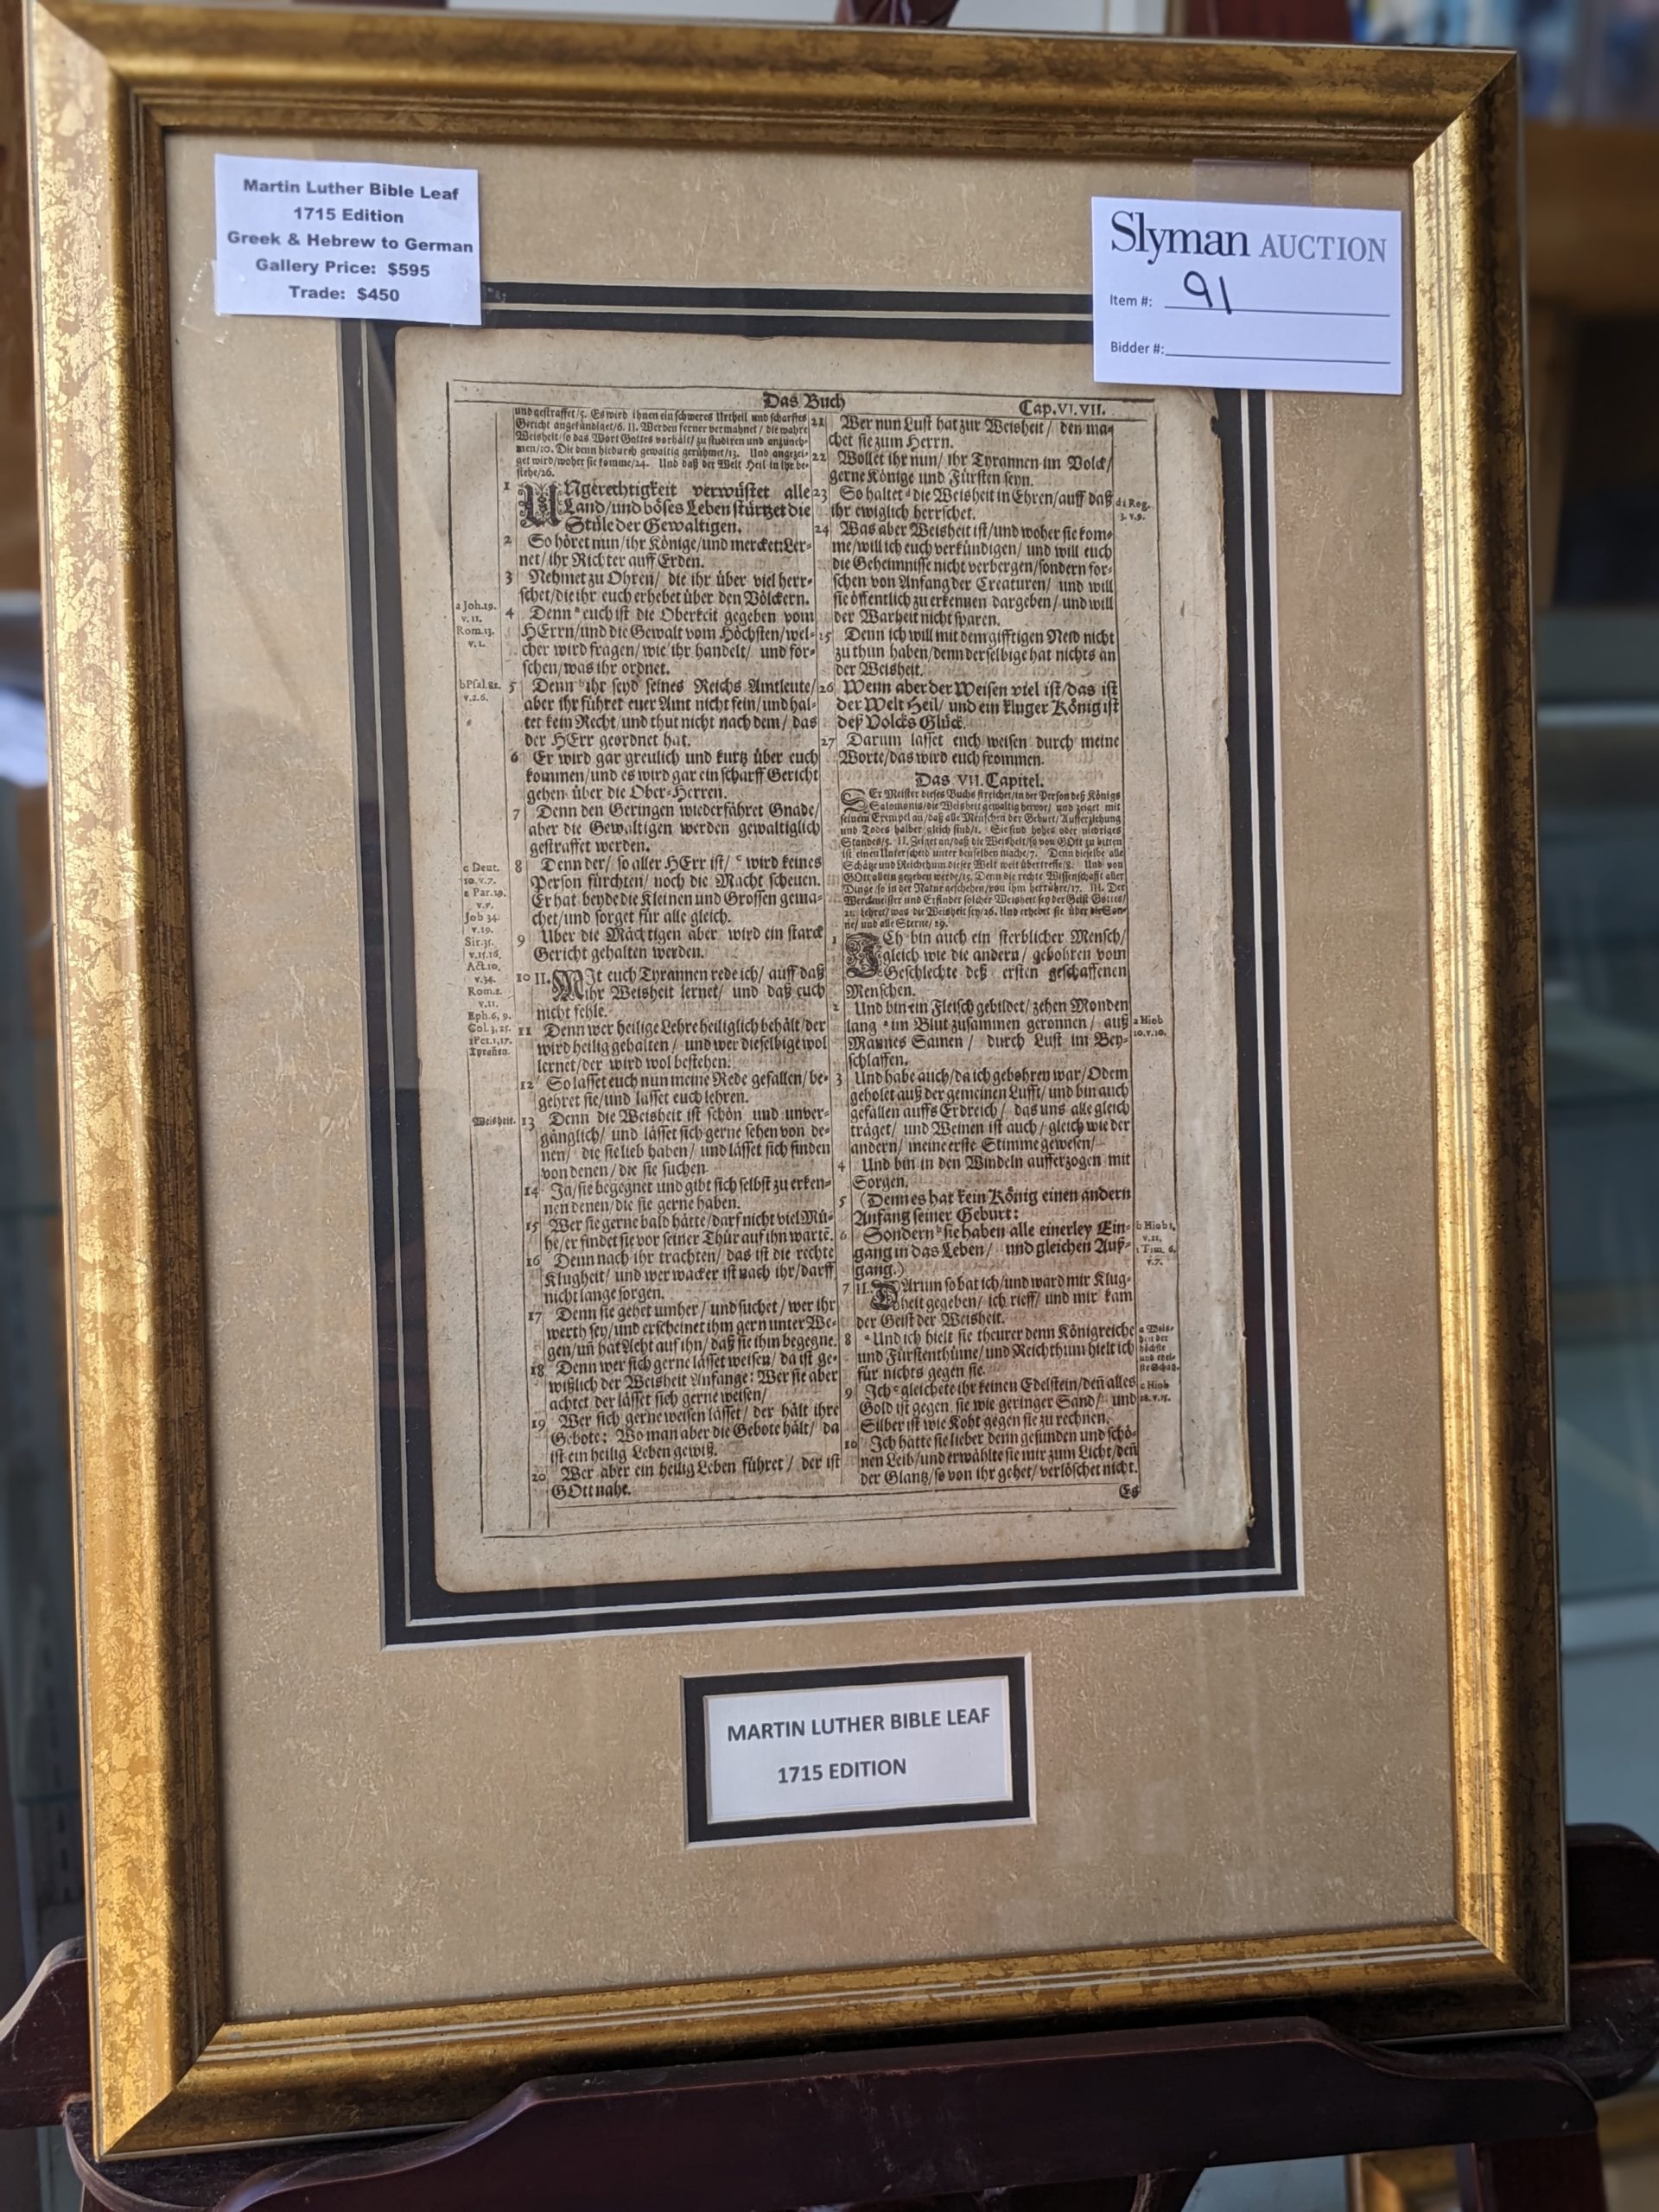 Martin Luther Bible Leaf
1715 Edition
Greek & Hebrew to German
Gallery Price: $595
Trade: $450
Slyman AUCTION
Item #: 91
Bidder #:
Das Buch
Cap. VI. VII.
und gestraffet/5. Es wird ihnen ein schweres Urtheil und scharffes
Gericht angekündiget/6. II. Werden ferner vermahnet/ die wahre
Weisheit/ so das Wort Gottes vorhält/ zu studiren und anzuneh-
men/10. Die denn hiedurch gewaltig gerühmet/13. Und angezei-
get wird/woher sie komme/24. Und daß der Welt Heil in ihr be-
stehe/26.
1 UNgerechtigkeit verwüstet alle
Land/und böses Leben stürtzet die
Stüle der Gewaltigen.
2 So höret nun/ihr Könige/und mercket: Ler-
net/ihr Richter auff Erden.
3 Nehmet zu Ohren/ die ihr über viel herr-
schet/die ihr euch erhebet über den Völckern.
a Joh. 19.
v. 11.
Rom. 13.
v. 1.
4 Denn a euch ist die Oberkeit gegeben vom
HErrn/und die Gewalt vom Höchsten/wel-
cher wird fragen/wie ihr handelt/ und for-
schen/was ihr ordnet.
b Psal. 82.
v. 2. 6.
5 Denn b ihr seyd seines Reichs Amtleute/
aber ihr führet euer Amt nicht fein/und hal-
tet kein Recht/und thut nicht nach dem/ das
der HErr geordnet hat.
6 Er wird gar greulich und kurtz über euch
kommen/und es wird gar ein scharff Gericht
gehen über die Ober-Herren.
7 Denn den Geringen wiederfähret Gnade/
aber die Gewaltigen werden gewaltiglich
gestraffet werden.
c Deut.
10. v. 7.
2 Par. 19.
v. 7.
Job 34.
v. 19.
Sir. 35.
v. 15. 16.
Act. 10.
v. 34.
Rom. 2.
v. 11.
Eph. 6, 9.
Col. 3, 25.
1 Pet. 1, 17.
Tyrannen.
8 Denn der/ so aller HErr ist/ c wird keines
Person fürchten/ noch die Macht scheuen.
Er hat beyde die Kleinen und Grossen gema-
chet/und sorget für alle gleich.
9 Uber die Mächtigen aber wird ein starck
Gericht gehalten werden.
10 II. MIt euch Tyrannen rede ich/ auff daß
ihr Weisheit lernet/ und daß euch
nicht fehle.
11 Denn wer heilige Lehre heiliglich behält/der
wird heilig gehalten/ und wer dieselbige wol
lernet/der wird wol bestehen.
12 So lasset euch nun meine Rede gefallen/be-
gehret sie/und lasset euch lehren.
Weisheit.
13 Denn die Weisheit ist schön und unver-
gänglich/ und lässet sich gerne sehen von de-
nen/ die sie lieb haben/ und lässet sich finden
von denen/die sie suchen.
14 Ja/sie begegnet und gibt sich selbst zu erken-
nen denen/die sie gerne haben.
15 Wer sie gerne bald hätte/darf nicht viel Mü-
he/er findet sie vor seiner Thür auf ihn wartē.
16 Denn nach ihr trachten/ das ist die rechte
Klugheit/ und wer wacker ist nach ihr/darff
nicht lange sorgen.
17 Denn sie gehet umher/ und suchet/ wer ihr
werth sey/und erscheinet ihm gern unter We-
gen/uñ hat Acht auf ihn/daß sie ihm begegne.
18 Denn wer sich gerne lässet weisen/ da ist ge-
wißlich der Weisheit Anfange: Wer sie aber
achtet/der lässet sich gerne weisen/
19 Wer sich gerne weisen lässet/ der hält ihre
Gebote: Wo man aber die Gebote hält/ da
ist ein heilig Leben gewiß.
20 Wer aber ein heilig Leben führet/ der ist
GOtt nahe.
21 Wer nun Lust hat zur Weisheit/ den ma-
chet sie zum Herrn.
22 Wollet ihr nun/ ihr Tyrannen im Volck/
gerne Könige und Fürsten seyn.
23 So haltet d die Weisheit in Ehren/auff daß
ihr ewiglich herrschet.
d 1 Reg.
3. v. 9.
24 Was aber Weisheit ist/und woher sie kom-
me/will ich euch verkündigen/ und will euch
die Geheimnisse nicht verbergen/sondern for-
schen von Anfang der Creaturen/ und will
sie öffentlich zu erkennen dargeben/ und will
der Warheit nicht sparen.
25 Denn ich will mit dem gifftigen Neid nicht
zu thun haben/denn derselbige hat nichts an
der Weisheit.
26 Wenn aber der Weisen viel ist/das ist
der Welt Heil/ und ein kluger König ist
deß Volcks Glück.
27 Darum lasset euch weisen durch meine
Worte/das wird euch frommen.
Das VII. Capitel.
DEr Meister dieses Buchs streichet/in der Person deß Königs
Salomonis/die Weisheit gewaltig hervor/ und zeiget mit
seinem Exempel an/daß alle Menschen der Geburt/Aufferziehung
und Todes halber gleich sind/1. Sie sind hohes oder niedriges
Standes/5. II. Zeiget an/daß die Weisheit/so von GOtt zu bitten
ist einen Unterscheid unter denselben mache/7. Denn dieselbe alle
Schätze und Reichthum dieser Welt weit übertreffe/8. Und von
GOtt allein gegeben werde/15. Denn die rechte Wissenschafft aller
Dinge/so in der Natur geschehen/von ihm herrühre/17. III. Der
Werckmeister und Erfinder solcher Weisheit sey der Geist Gottes/
21. lehret/was die Weisheit sey/26. Und erhebet sie über die Son-
ne/ und alle Sterne/29.
1 ICh bin auch ein sterblicher Mensch/
gleich wie die andern/ gebohren vom
Geschlechte deß ersten geschaffenen
Menschen.
2 Und bin ein Fleisch gebildet/ zehen Monden
lang a im Blut zusammen geronnen/ auß
Mannes Samen/ durch Lust im Bey-
schlaffen.
a Hiob
10. v. 10.
3 Und habe auch/da ich gebohren war/Odem
geholet auß der gemeinen Lufft/und bin auch
gefallen auffs Erdreich/ das uns alle gleich
träget/ und Weinen ist auch/ gleich wie der
andern/ meine erste Stimme gewesen/
4 Und bin in den Windeln aufferzogen mit
Sorgen.
5 (Denn es hat kein König einen andern
Anfang seiner Geburt:
6 Sondern b sie haben alle einerley Ein-
gang in das Leben/ und gleichen Auß-
gang.)
b Hiob 1,
v. 21.
1 Tim. 6.
v. 7.
7 II. DArum so bat ich/und ward mir Klug-
heit gegeben/ ich rieff/ und mir kam
der Geist der Weisheit.
8 Und ich hielt sie theurer denn Königreiche
und Fürstenthüme/und Reichthum hielt ich
für nichts gegen sie.
a Weis-
heit der
höchste
und edel-
ste Schatz.
9 Ich c gleichete ihr keinen Edelstein/deñ alles
Gold ist gegen sie wie geringer Sand/ und
Silber ist wie Koht gegen sie zu rechnen.
c Hiob
28. v. 15.
10 Ich hatte sie lieber denn gesunden und schö-
nen Leib/und erwählte sie mir zum Licht/deñ
der Glantz/so von ihr gehet/verlöschet nicht.
Es
MARTIN LUTHER BIBLE LEAF
1715 EDITION